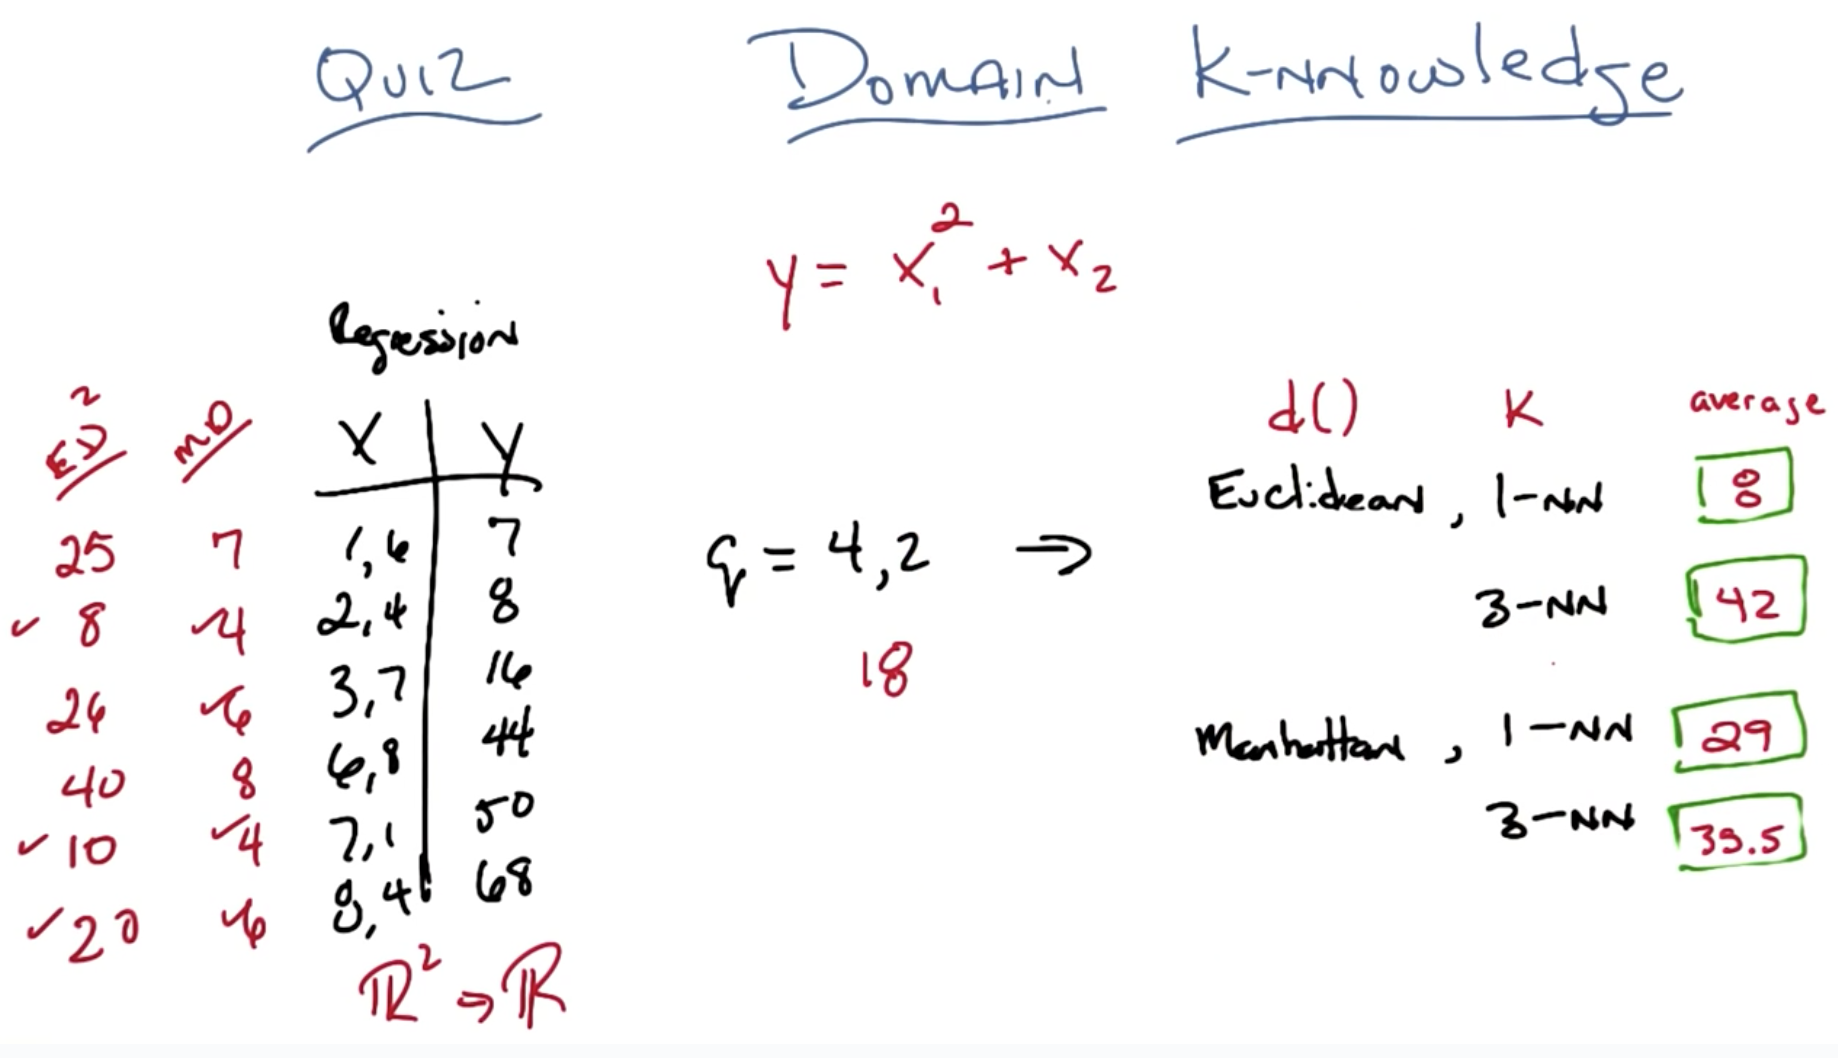 Quiz Domain K-NNowledge
y = x₁² + x₂
Regression
ED² MD X Y
25 7 1,6 7
✓ 8 ✓4 2,4 8
26 ✓6 3,7 16
40 8 6,8 44
✓ 10 ✓4 7,1 50
✓ 20 ✓6 8,4 68
ℝ² → ℝ
q = 4,2 ⇒
18
d() K average
Euclidean, 1-NN 8
3-NN 42
Manhattan, 1-NN 29
3-NN 35.5